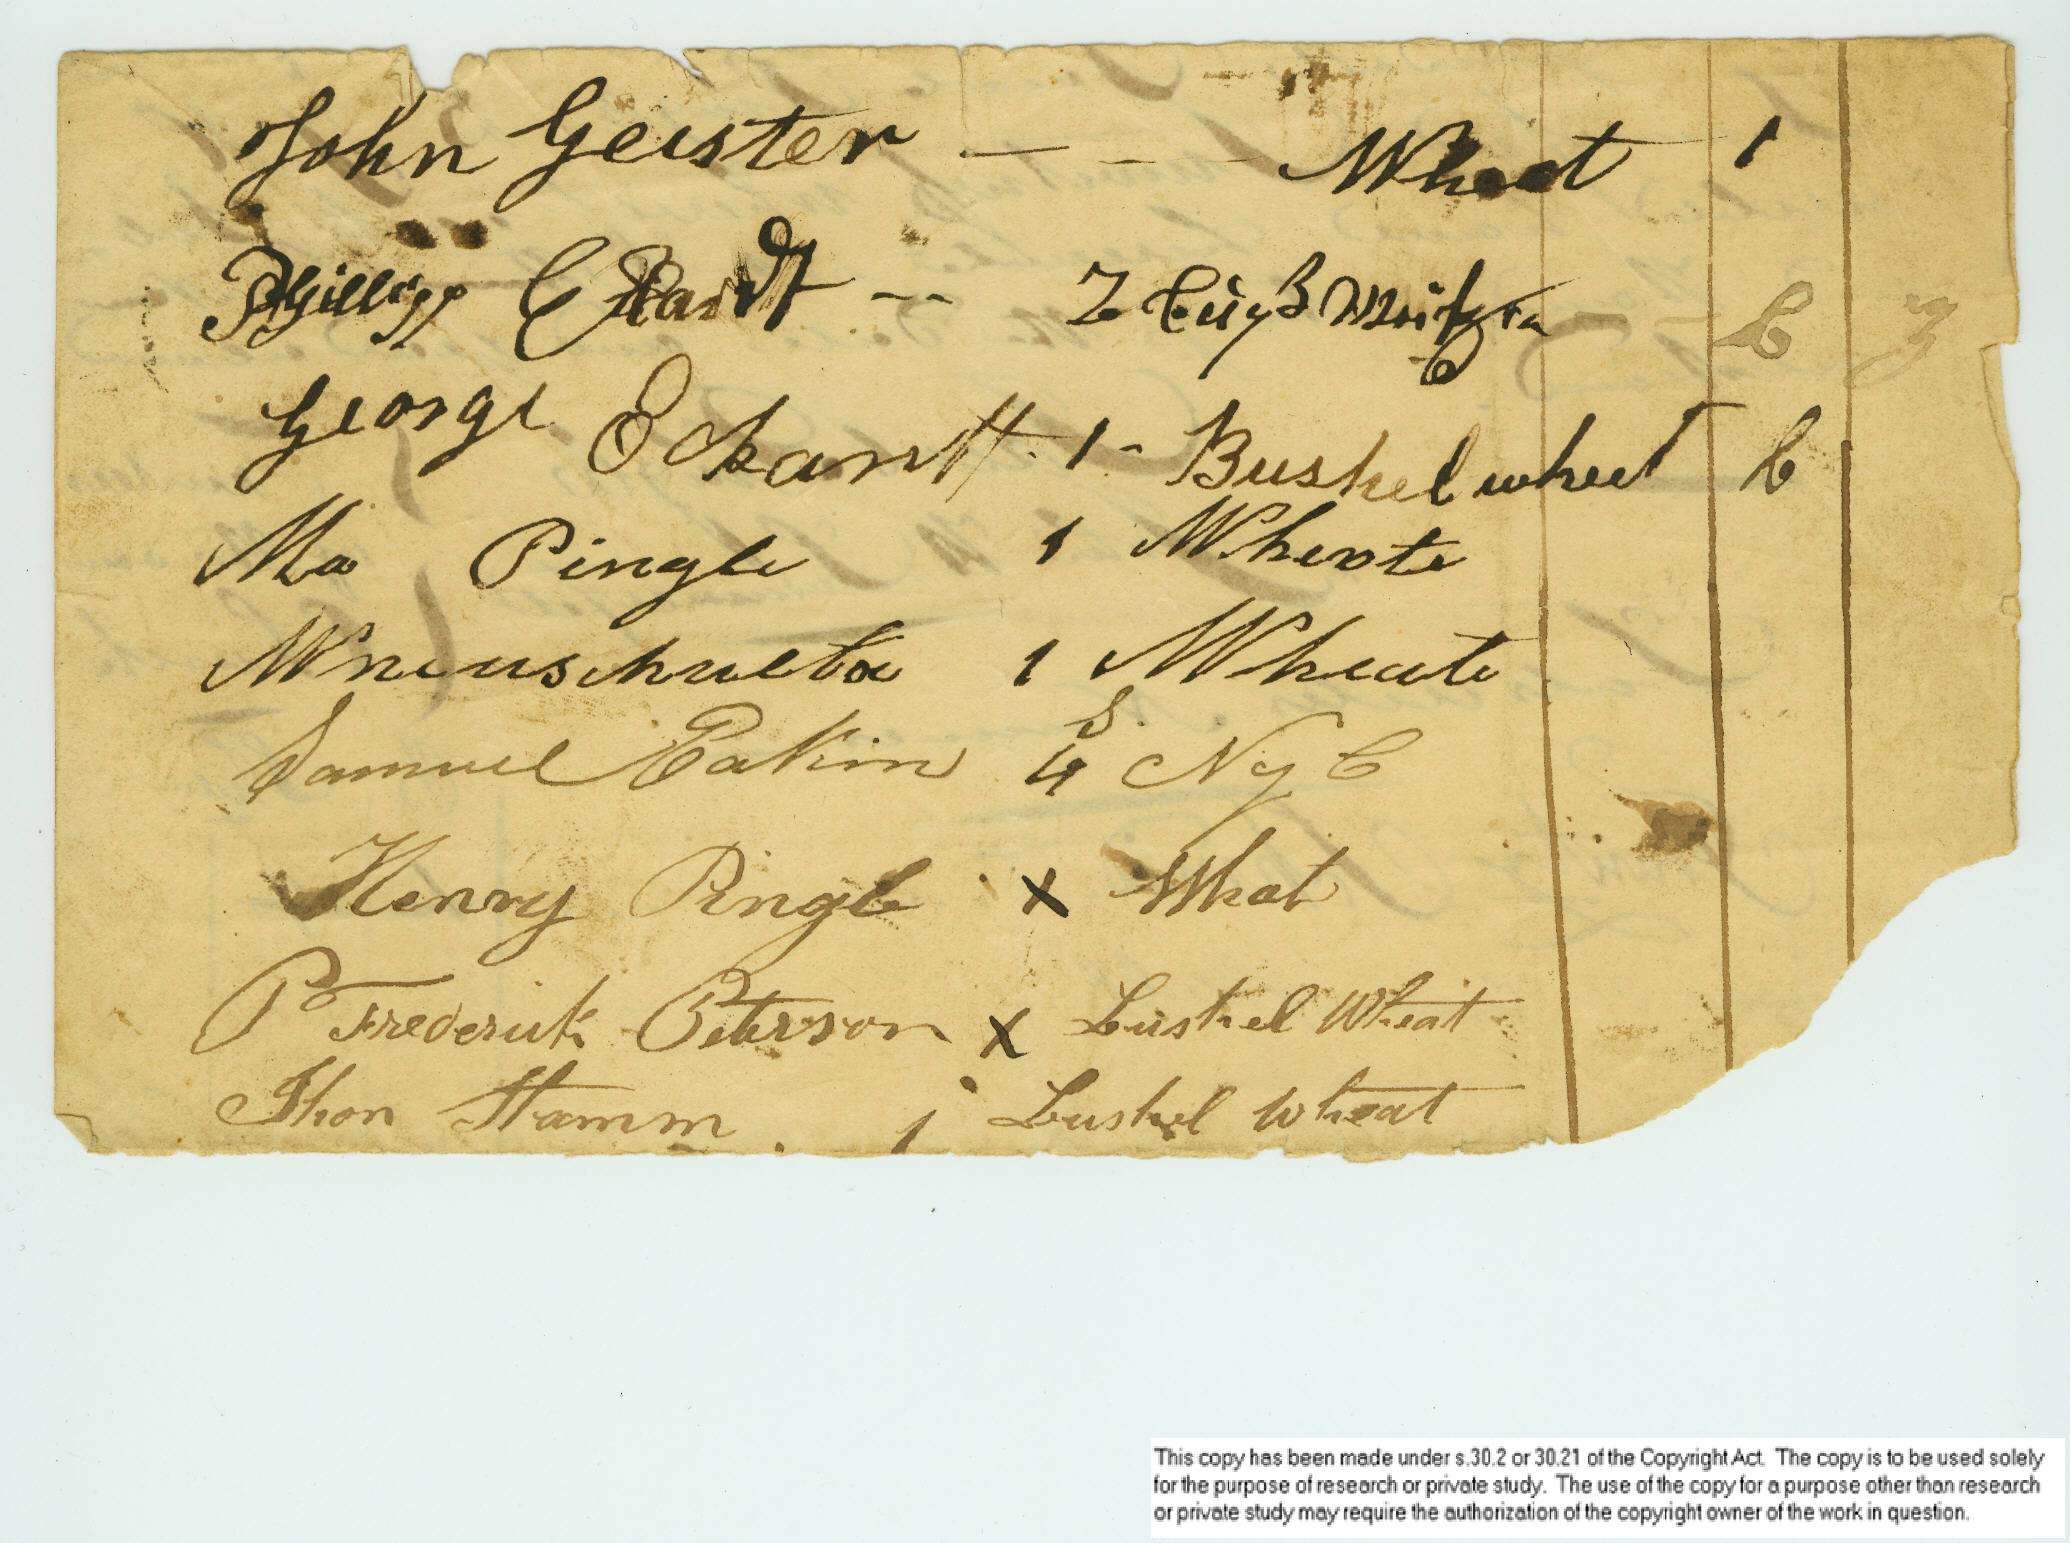 John Geister — - - Wheat 1
Phillipp Ekardt -- 2 Buß Weitzen b 3
George Eckardtt. 1 - Bushel wheet b
Ma Pingle 1 Wheate
1 Wheate
Samuel Eakin 4 S. NyC
Henry Pingle x What
P Frederick Peterson x bushel Wheat
Jhon Stamm. 1 bushel wheat
This copy has been made under s.30.2 or 30.21 of the Copyright Act. The copy is to be used solely
for the purpose of research or private study. The use of the copy for a purpose other than research
or private study may require the authorization of the copyright owner of the work in question.